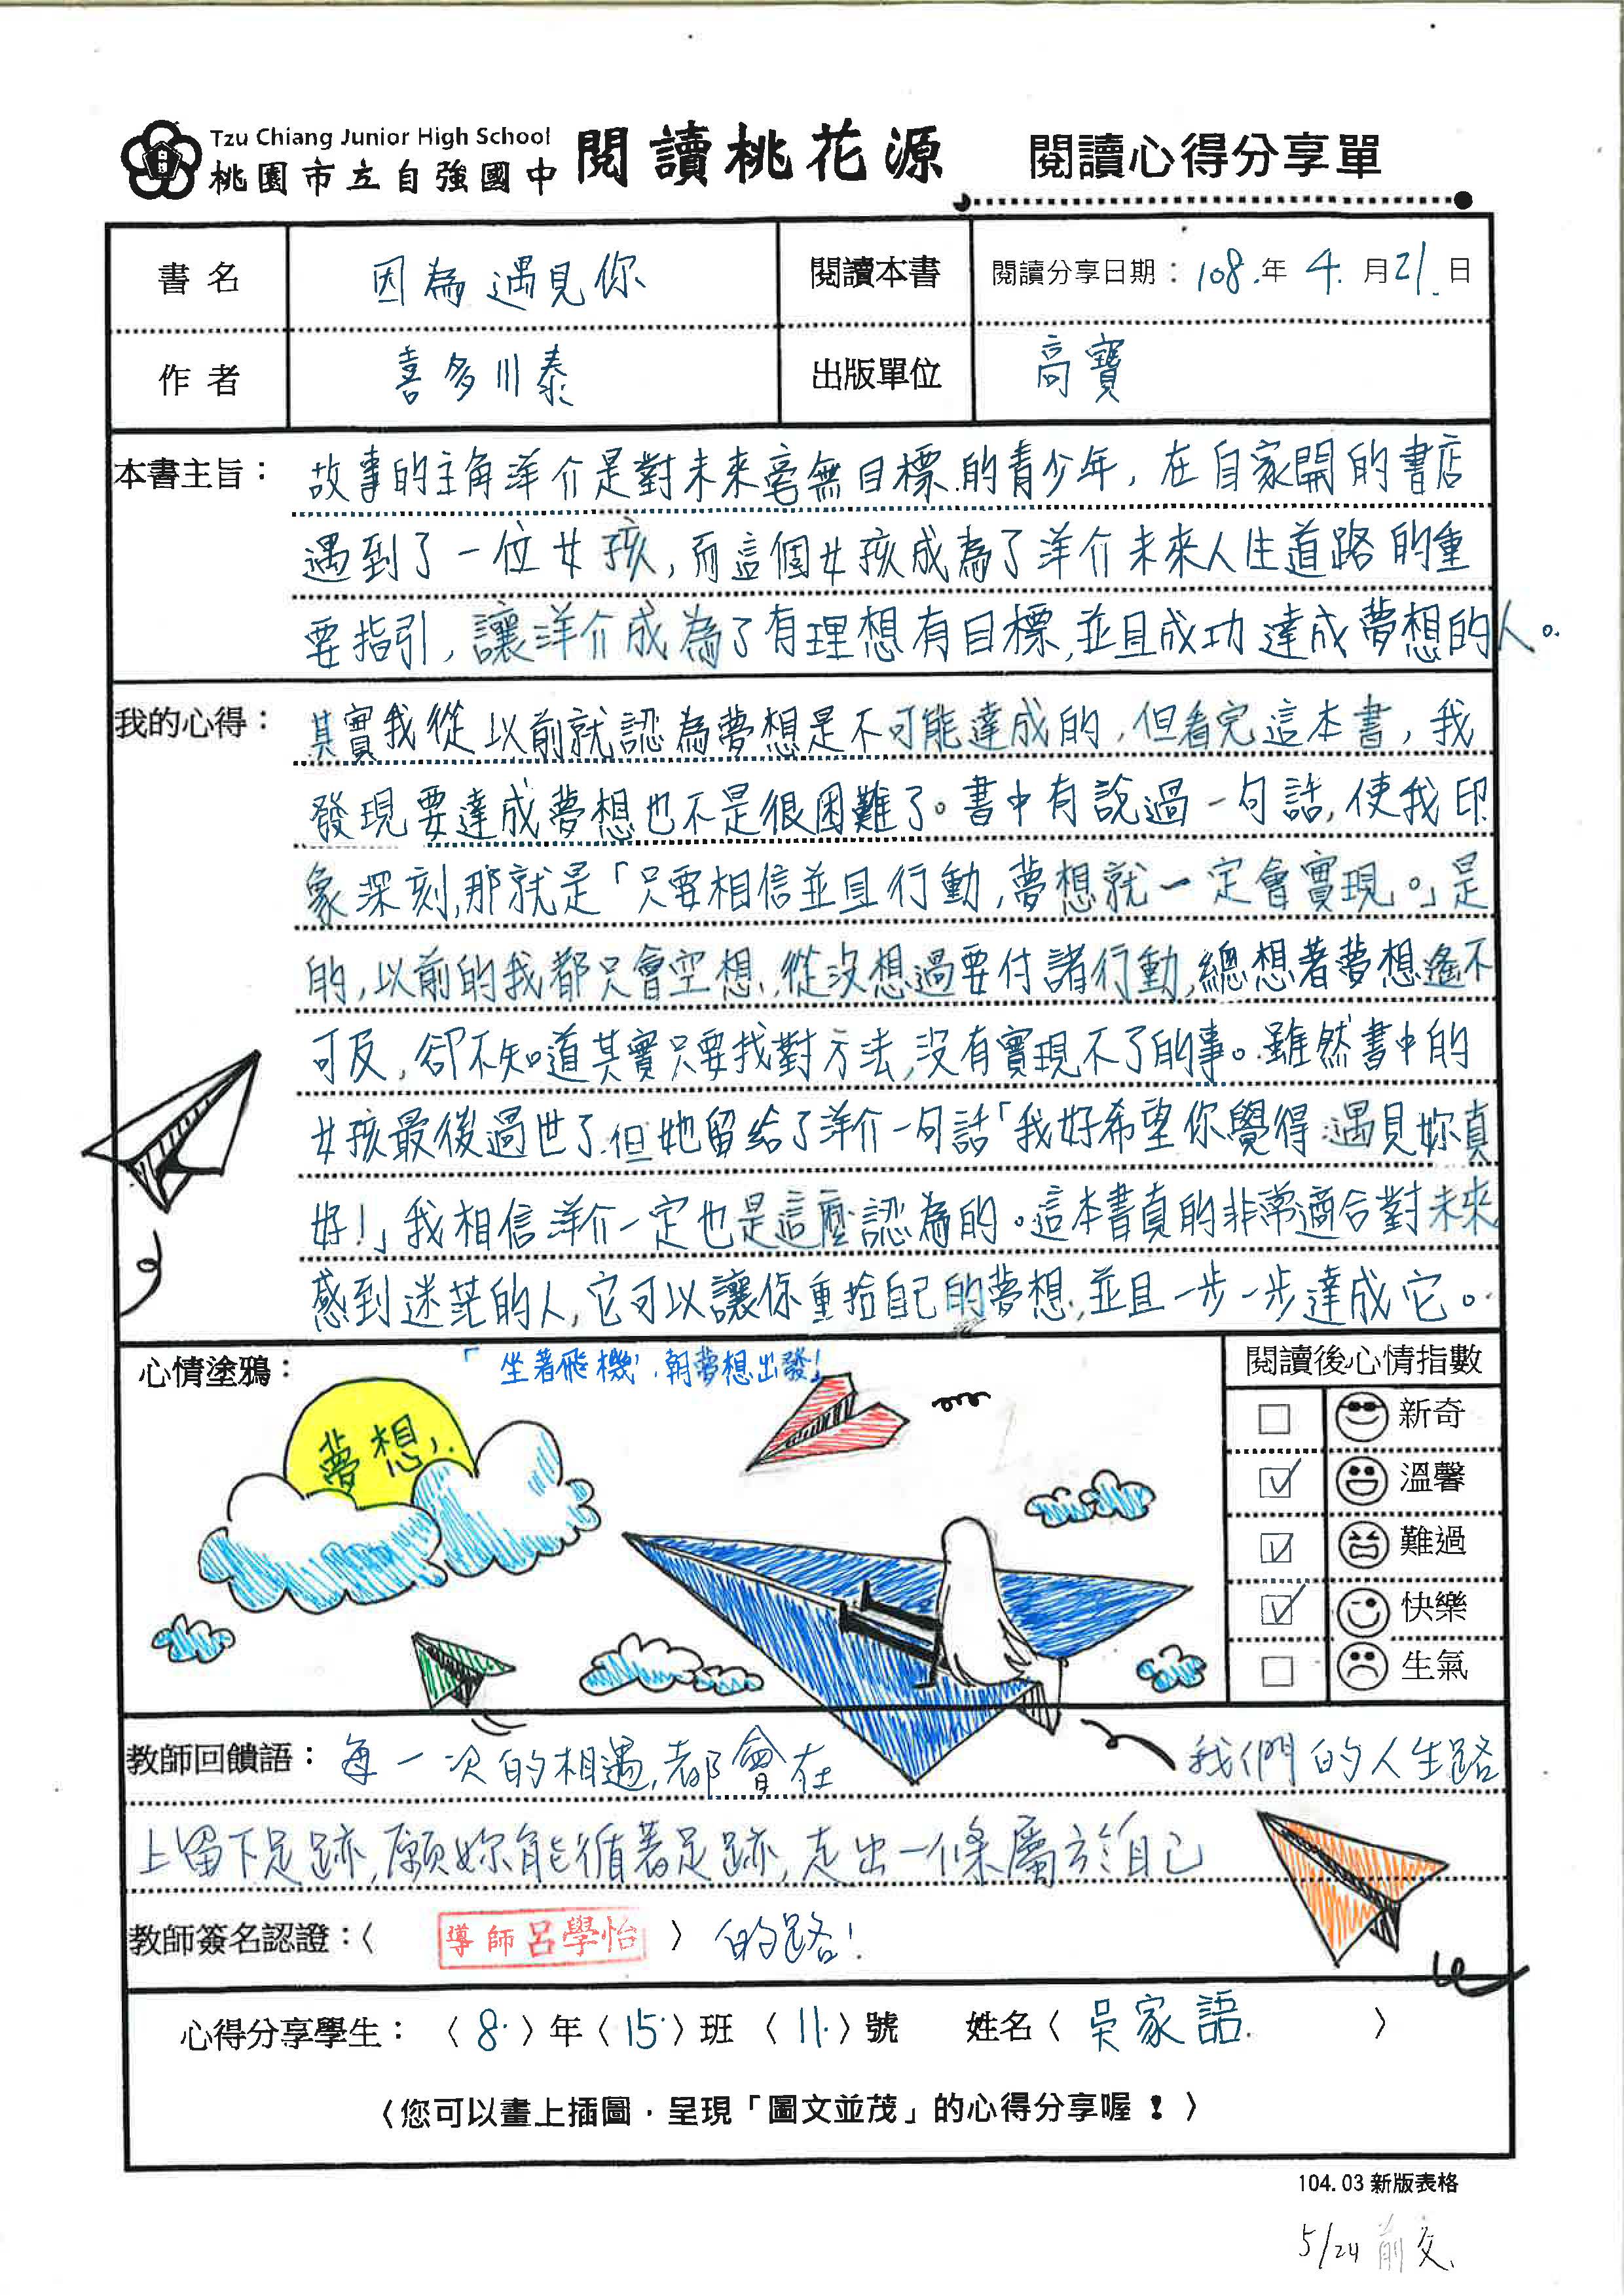 Tzu Chiang Junior High School
桃園市立自強國中 閱讀桃花源 閱讀心得分享單
書名 因為遇見你 閱讀本書 閱讀分享日期：108.年 4.月21.日
作者 喜多川泰 出版單位 高寶
本書主旨：故事的主角洋介是對未來毫無目標的青少年，在自家開的書店
遇到了一位女孩，而這個女孩成為了洋介未來人生道路的重
要指引，讓洋介成為了有理想有目標，並且成功達成夢想的人。
我的心得：其實我從以前就認為夢想是不可能達成的，但看完這本書，我
發現要達成夢想也不是很困難了。書中有說過一句話，使我印
象深刻，那就是「只要相信並且行動，夢想就一定會實現。」是
的，以前的我都只會空想，從沒想過要付諸行動，總想著夢想遙不
可及，卻不知道其實只要找對方法，沒有實現不了的事。雖然書中的
女孩最後過世了，但她留給了洋介一句話「我好希望你覺得遇見妳真
好！」我相信洋介一定也是這麼認為的。這本書真的非常適合對未來
感到迷茫的人，它可以讓你重拾自己的夢想，並且一步一步達成它。
心情塗鴉：
「坐著飛機，朝夢想出發！」
夢想
閱讀後心情指數
新奇
溫馨
難過
快樂
生氣
教師回饋語：每一次的相遇，都會在我們的人生路
上留下足跡，願妳能循著足跡，走出一條屬於自己
教師簽名認證：〈 導師呂學怡 〉 的路！
心得分享學生：〈8.〉年〈15.〉班〈11.〉號 姓名〈吳家語.〉
〈您可以畫上插圖，呈現「圖文並茂」的心得分享喔！〉
104.03 新版表格
5/24 前交